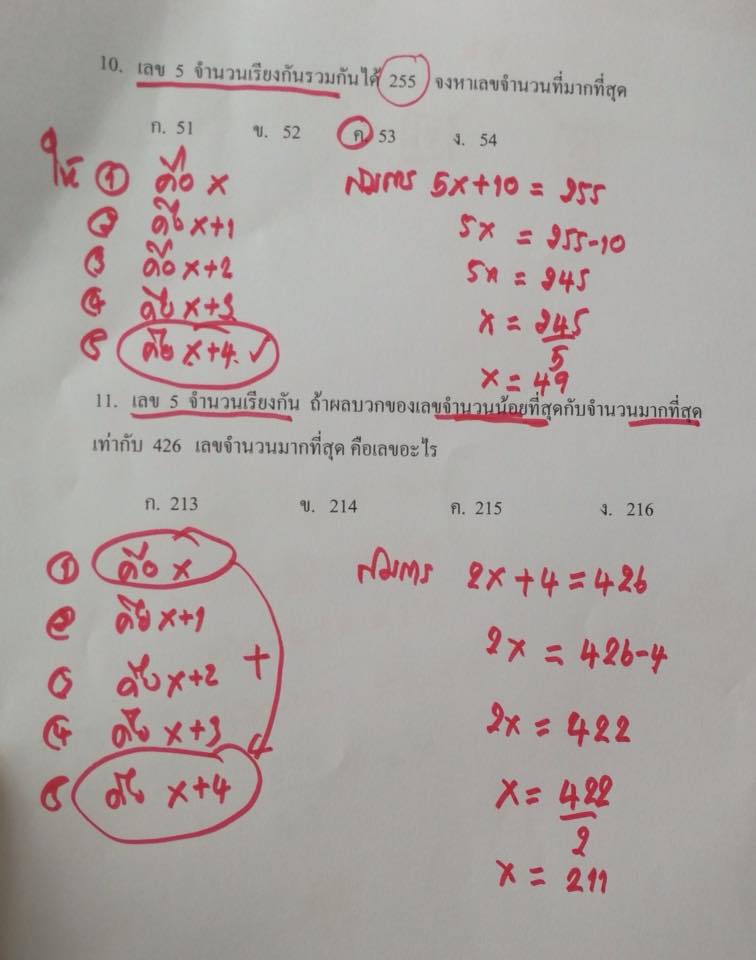 10. เลข 5 จำนวนเรียงกันรวมกันได้ 255 จงหาเลขจำนวนที่มากที่สุด
ก. 51 ข. 52 ค. 53 ง. 54
ให้ ① คือ x
② คือ x+1
③ คือ x+2
④ คือ x+3
⑤ คือ x+4 ✓
สมการ 5x+10 = 255
5x = 255-10
5x = 245
x = 245/5
x = 49
11. เลข 5 จำนวนเรียงกัน ถ้าผลบวกของเลขจำนวนน้อยที่สุดกับจำนวนมากที่สุด
เท่ากับ 426 เลขจำนวนมากที่สุด คือเลขอะไร
ก. 213 ข. 214 ค. 215 ง. 216
① คือ x
② คือ x+1
③ คือ x+2
④ คือ x+3
⑤ คือ x+4
+
สมการ 2x+4 = 426
2x = 426-4
2x = 422
x = 422/2
x = 211